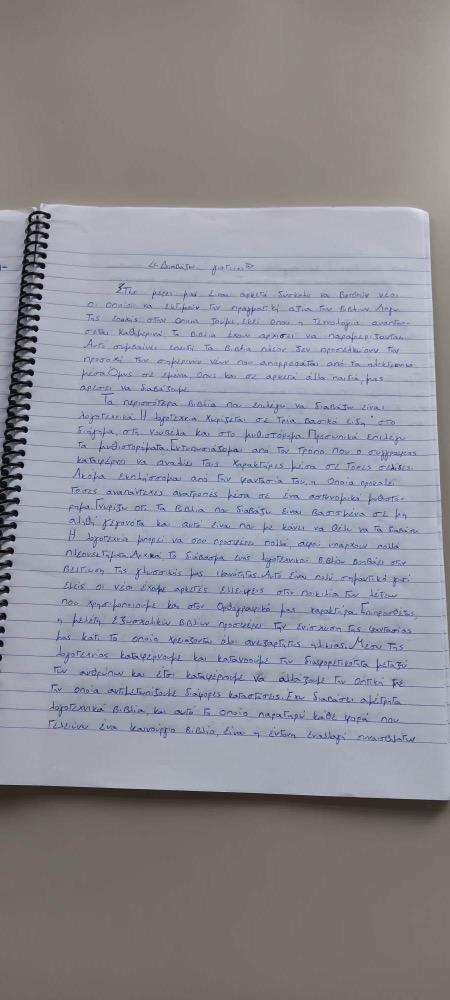 <<Διαβάζω γιατί...>>
Στις μέρες μας είναι αρκετά δύσκολο να βρεθούν νέοι
οι οποίοι να εκτιμούν την πραγματική αξία των βιβλίων. Λόγω
της εποχής στην οποία ζούμε, εκεί όπου η τεχνολογία αναπτύσ-
σεται καθημερινά τα βιβλία έχουν αρχίσει να παραμερίζονται.
Αυτό συμβαίνει επειδή τα βιβλία πλέον δεν προσελκύουν την
προσοχή των σημερινών νέων που απορροφάται από τα ηλεκτρονικά
μέσα. Όμως σε εμένα, όπως και σε αρκετά άλλα παιδιά, μας
αρέσει να διαβάζουμε.
Τα περισσότερα βιβλία που επιλέγω να διαβάζω είναι
λογοτεχνικά. Η λογοτεχνία χωρίζεται σε τρία βασικά είδη: στο
διήγημα, στη νουβέλα και στο μυθιστόρημα. Προσωπικά επιλέγω
τα μυθιστορήματα. Εντυπωσιάζομαι από τον τρόπο που ο συγγραφέας
καταφέρνει να αναδείξει τους χαρακτήρες μέσα σε τόσες σελίδες.
Ακόμα εκπλήσσομαι από την φαντασία του, η οποία προκαλεί
τόσες αναπάντεχες ανατροπές μέσα σε ένα αστυνομικό μυθιστό-
ρημα. Γνωρίζω ότι τα βιβλία που διαβάζω είναι βασισμένα σε μη
αληθή γεγονότα και αυτό είναι που με κάνει να θέλω να τα διαβάσω.
Η λογοτεχνία μπορεί να σου προσφέρει πολλά, αφού υπάρχουν πολλά
πλεονεκτήματα. Αρχικά το διάβασμα ενός λογοτεχνικού βιβλίου βοηθάει στην
βελτίωση της γλωσσικής μας ικανότητας. Αυτό είναι πολύ σημαντικό γιατί
εμείς οι νέοι έχουμε αρκετές ελλείψεις στην ποικιλία των λέξεων
που χρησιμοποιούμε και στον ορθογραφικό μας χαρακτήρα. Επιπρόσθετα,
η μελέτη εξωσχολικών βιβλίων προσφέρει την ενίσχυση της φαντασίας
μας κάτι το οποίο χρειάζονται όλοι ανεξαρτήτως ηλικίας. Μέσω της
λογοτεχνίας καταφέρνουμε και κατανοούμε την διαφορετικότητα μεταξύ
των ανθρώπων και έτσι καταφέρνουμε να αλλάξουμε την οπτική με
την οποία αντιμετωπίζουμε διάφορες καταστάσεις. Έχω διαβάσει αμέτρητα
λογοτεχνικά βιβλία, και αυτό το οποίο παρατηρώ κάθε φορά που
τελειώνω ένα καινούργιο βιβλίο, είναι η έντονη εναλλαγή συναισθημάτων